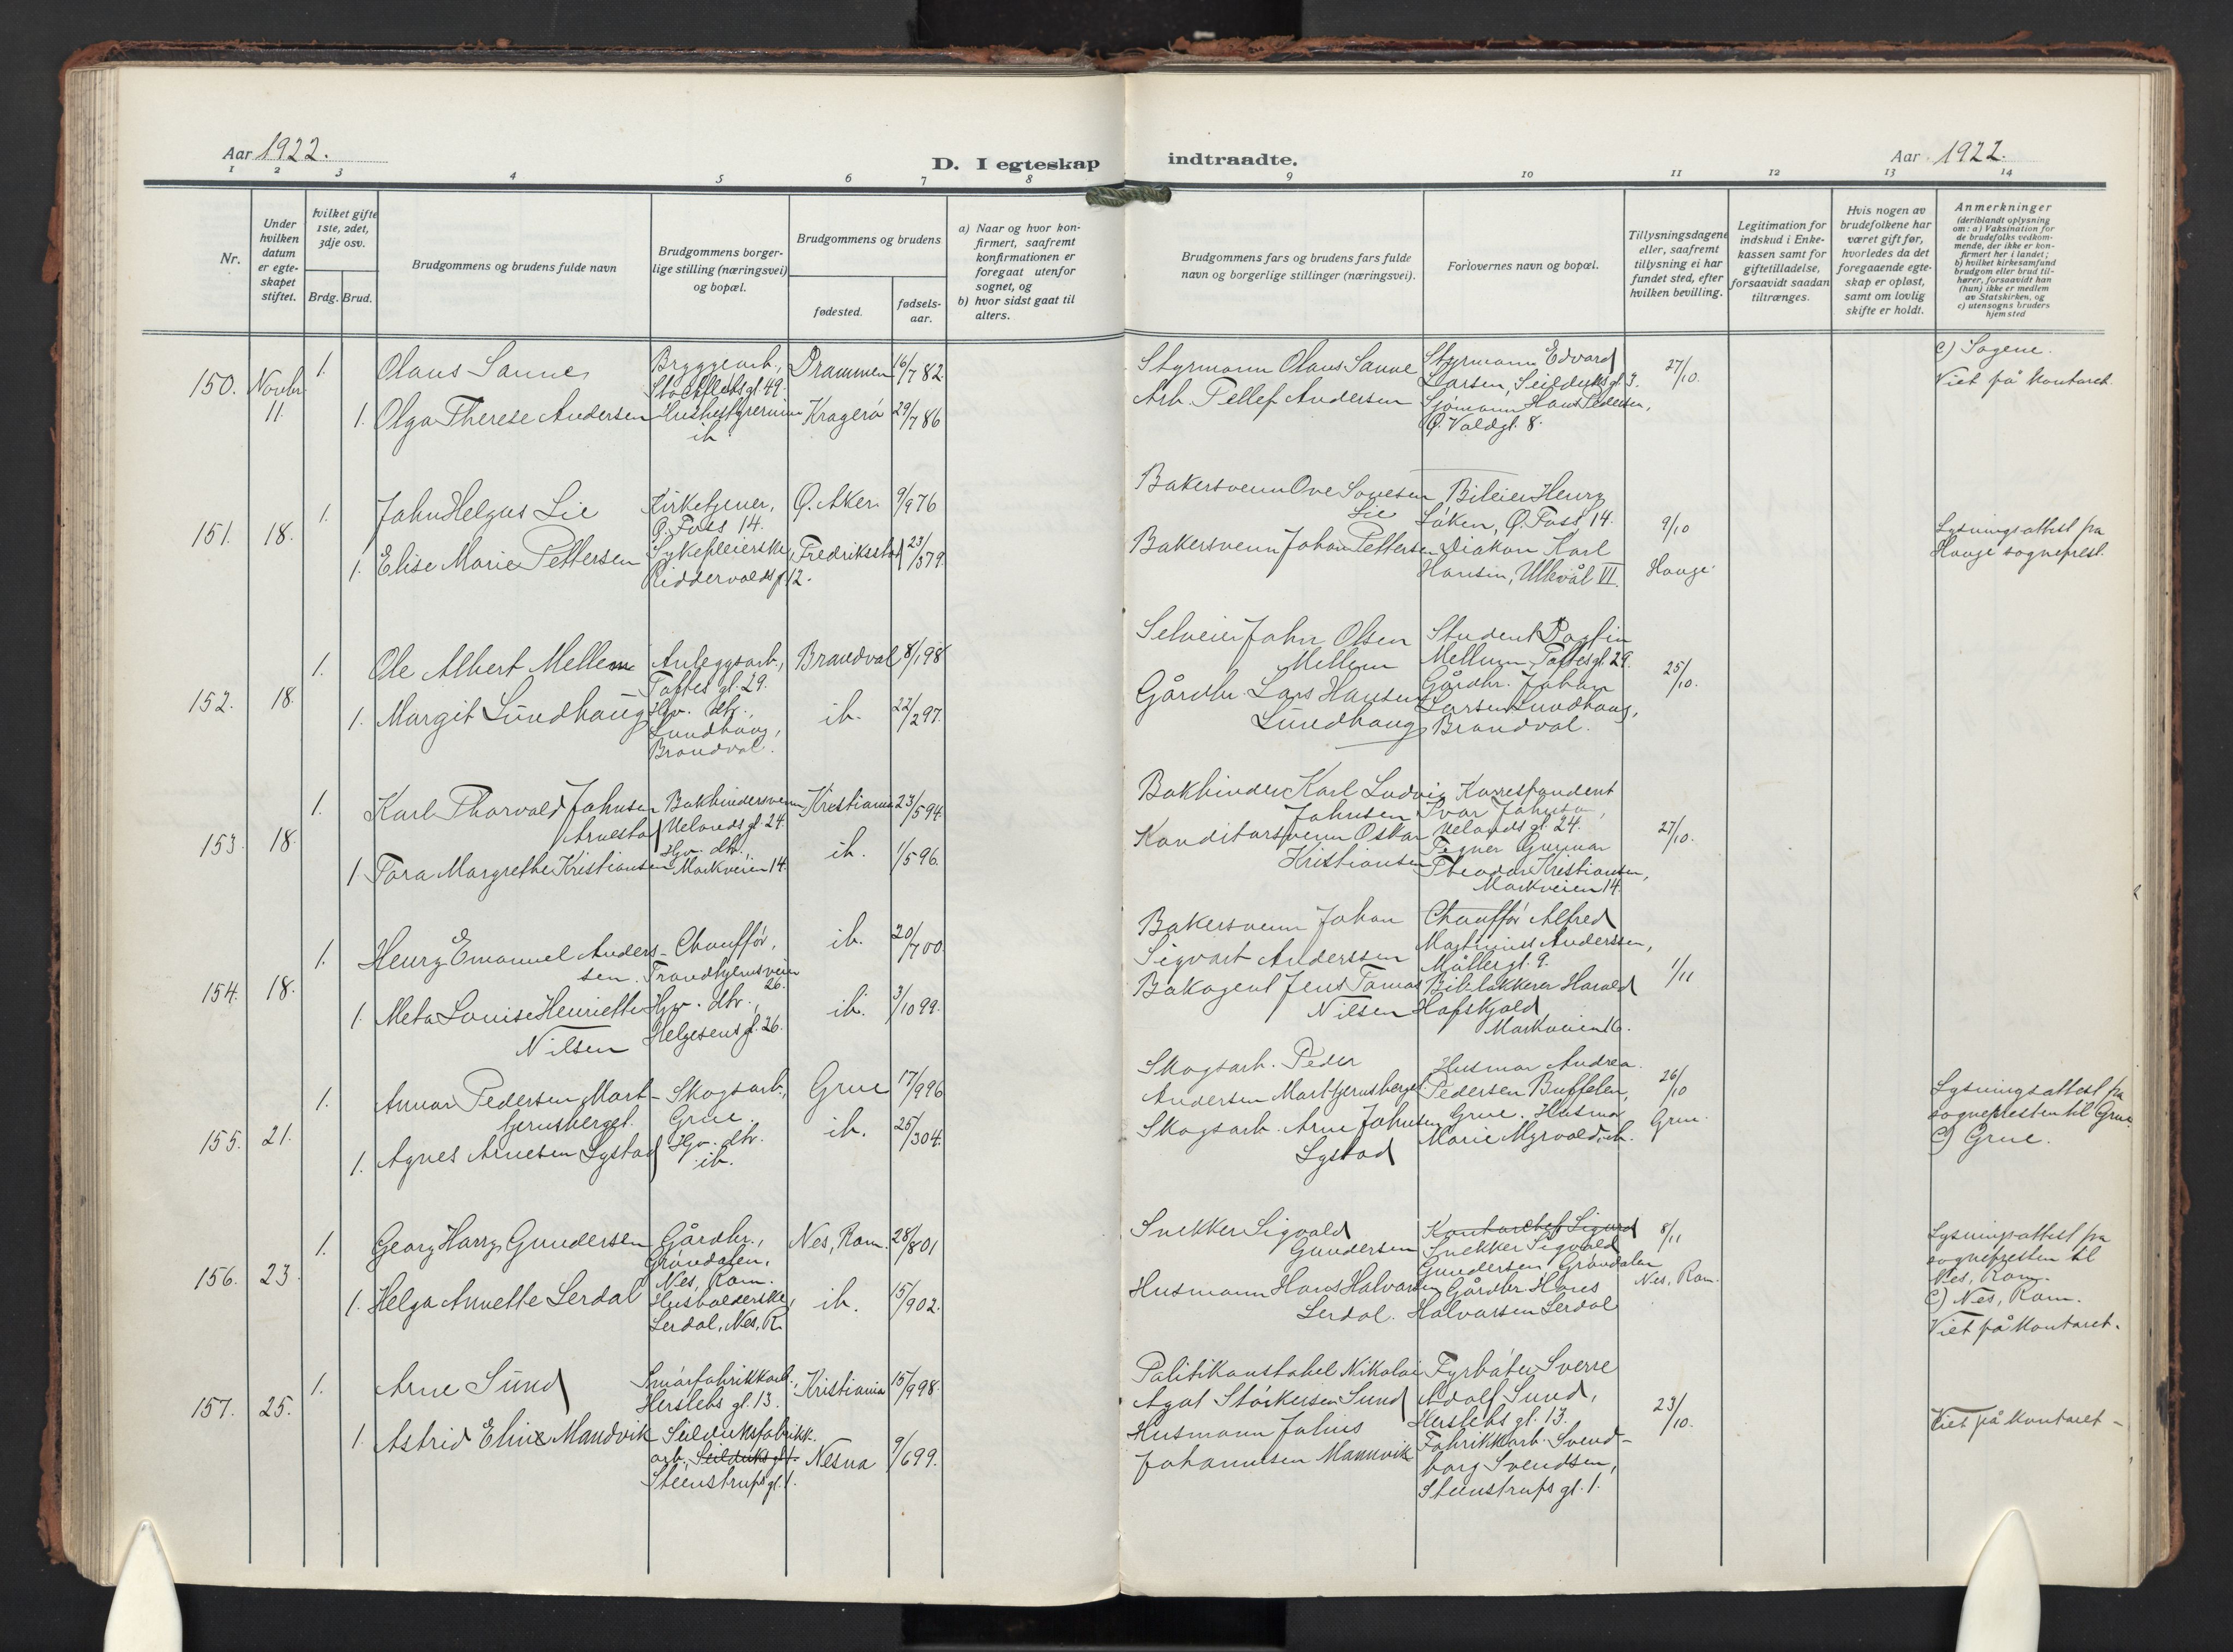 Aar 1922.
D. I egteskap
indtraadte.
Aar 1922.
1 2 3 4 5 6 7 8 9 10 11 12 13 14
Nr.
Under
hvilken
datum
er egte-
skapet
stiftet.
hvilket gifte
1ste, 2det,
3dje osv.
Brdg. Brud.
Brudgommens og brudens fulde navn
Brudgommens borger-
lige stilling (næringsvei)
og bopæl.
Brudgommens og brudens
fødested.
fødsels-
aar.
a) Naar og hvor kon-
firmert, saafremt
konfirmationen er
foregaat utenfor
sognet, og
b) hvor sidst gaat til
alters.
Brudgommens fars og brudens fars fulde
navn og borgerlige stillinger (næringsvei).
Forlovernes navn og bopæl.
Tillysningsdagene
eller, saafremt
tillysning ei har
fundet sted, efter
hvilken bevilling.
Legitimation for
indskud i Enke-
kassen samt for
giftetilladelse,
forsaavidt saadan
tiltrænges.
Hvis nogen av
brudefolkene har
været gift før,
hvorledes da det
foregaaende egte-
skap er opløst,
samt om lovlig
skifte er holdt.
Anmerkninger
(deriblandt oplysning
om: a) Vaksination for
de brudefolks vedkom-
mende, der ikke er kon-
firmert her i landet;
b) hvilket kirkesamfund
brudgom eller brud til-
hører, forsaavidt han
(hun) ikke er medlem
av Statskirken, og
c) utensogns bruders
hjemsted
150. Novbr
11.
1. Olaus Sanne
Bryggearb.,
gt. 49.
Drammen 16/7 82.
1. Olga Therese Andersen
ib.
Kragerø 29/7 86
Styrmann Olaus Sanne
Arb. Tellef Andersen
Styrmann Edvard
Larsen, Seilduksgt. 3.
Sjømann Hans Pedersen,
Ø. Voldgt. 8.
27/10.
c) Sagene.
Viet på kontoret.
151. 18.
1. John Helgus Lie
Kirketjener,
Ø. Foss 14.
Ø. Aker 9/9 76
1. Elise Marie Pettersen
Sykepleierske,
Riddervolds pl. 12.
Fredrikstad 23/3 79.
Bakersvenn Ove
Lie
Bakersvenn Johan Pettersen
Bileier Henry
Løken, Ø. Foss 14.
Diakon Karl
Hansen, Ullevål VI.
9/10
Hauge
Lysningsattest fra
Hauge sogneprest.
152. 18.
1. Ole Albert Mellem
Anleggsarb.,
Toftes gt. 29.
Brandval 8/1 98
1. Margit Lundhaug
Hjv. dtr.,
Lundhaug,
Brandval.
ib. 22/2 97.
Selveier John Olsen
Mellem
Gårdbr. Lars Hansen
Lundhaug
Student
Mellem, Toftesgt. 29.
Gårdbr. Johan
Larsen Lundhaug,
Brandval.
25/10.
153. 18.
1. Karl Thorvald Johnsen
Arnestad
Bokbindersvenn,
Velands gt. 24.
Kristiania 23/5 94.
1 Tora Margrethe Kristiansen
Hjv. dtr.,
Markveien 14.
ib. 1/5 96.
Bokbinder Karl Ludvig
Johnsen
Konditorsvenn Oskar
Kristiansen
Korrespondent
Ivar Johnsen,
Velands gt. 24.
Tegner Gunnar
Theodor Kristiansen,
Markveien 14.
27/10.
154. 18.
1. Henry Emanuel Anders-
sen.
Chauffør,
Trondhjemsveien
26.
ib. 20/7 00.
1. Meta Louise Henriette
Nilsen
Hjv. dtr.,
Helgesens gt. 26.
ib. 3/10 99.
Bakersvenn Johan
Sigvart Anderssen
Bokagent Jens Tomas
Nilsen
Chauffør Alfred
Anderssen,
Møllergt. 9.
Billakkerer Harald
Hofskjold
Markveien 16.
1/11
155. 21.
1. Annar Pedersen Mort-
tjernsberget.
Skogsarb.,
Grue.
Grue 17/9 96
1. Agnes Arnesen Lystad
Hjv. dtr.
ib.
ib. 25/3 04.
Skogsarb. Peder
Andersen Morttjernsberget
Skogsarb. Arne Johnsen
Lystad
Husmor Andrea
Pedersen
Grue. Husmor
Marie Myrvold, ib.
26/10
Grue.
Lysningsattest fra
sognepresten til Grue.
c) Grue.
156. 23.
1. Georg Harry Gundersen
Gårdbr.,
Grøndalen,
Nes, Rom.
Nes, Rom. 28/8 01
1. Helga Annette Lerdal
Husholderske,
Lerdal, Nes, R.
ib. 15/9 02.
Snekker Sigvald
Gundersen
Husmann Hans Halvorsen
Lerdal.
Kontorchef Sigurd
Snekker Sigvald
Gundersen Grøndalen
Gårdbr Hans
Halvorsen Lerdal
8/11
Nes, Rom.
Lysningsattest fra
sognepresten til
Nes, Rom.
c) Nes, Rom.
Viet på kontoret.
157. 25.
1. Arne Sund
Smørfabrikkarb.,
Herslebs gt. 13.
Kristiania 15/9 98.
1. Astrid Eline Mandvik
Seilduksfabrikk-
arb., Seilduksgt 1.
Steenstrups gt. 1.
Nesna 9/6 99.
Politikonstabel Nikolai
Agat Størkersen Sund
Husmann Julius
Johannesen Mannvik
Fyrbøter Sverre
Adolf Sund,
Herslebs gt. 13.
Fabrikkarb. Svend-
borg Svendsen,
Steenstrups gt. 1.
23/10.
Viet på kontoret -